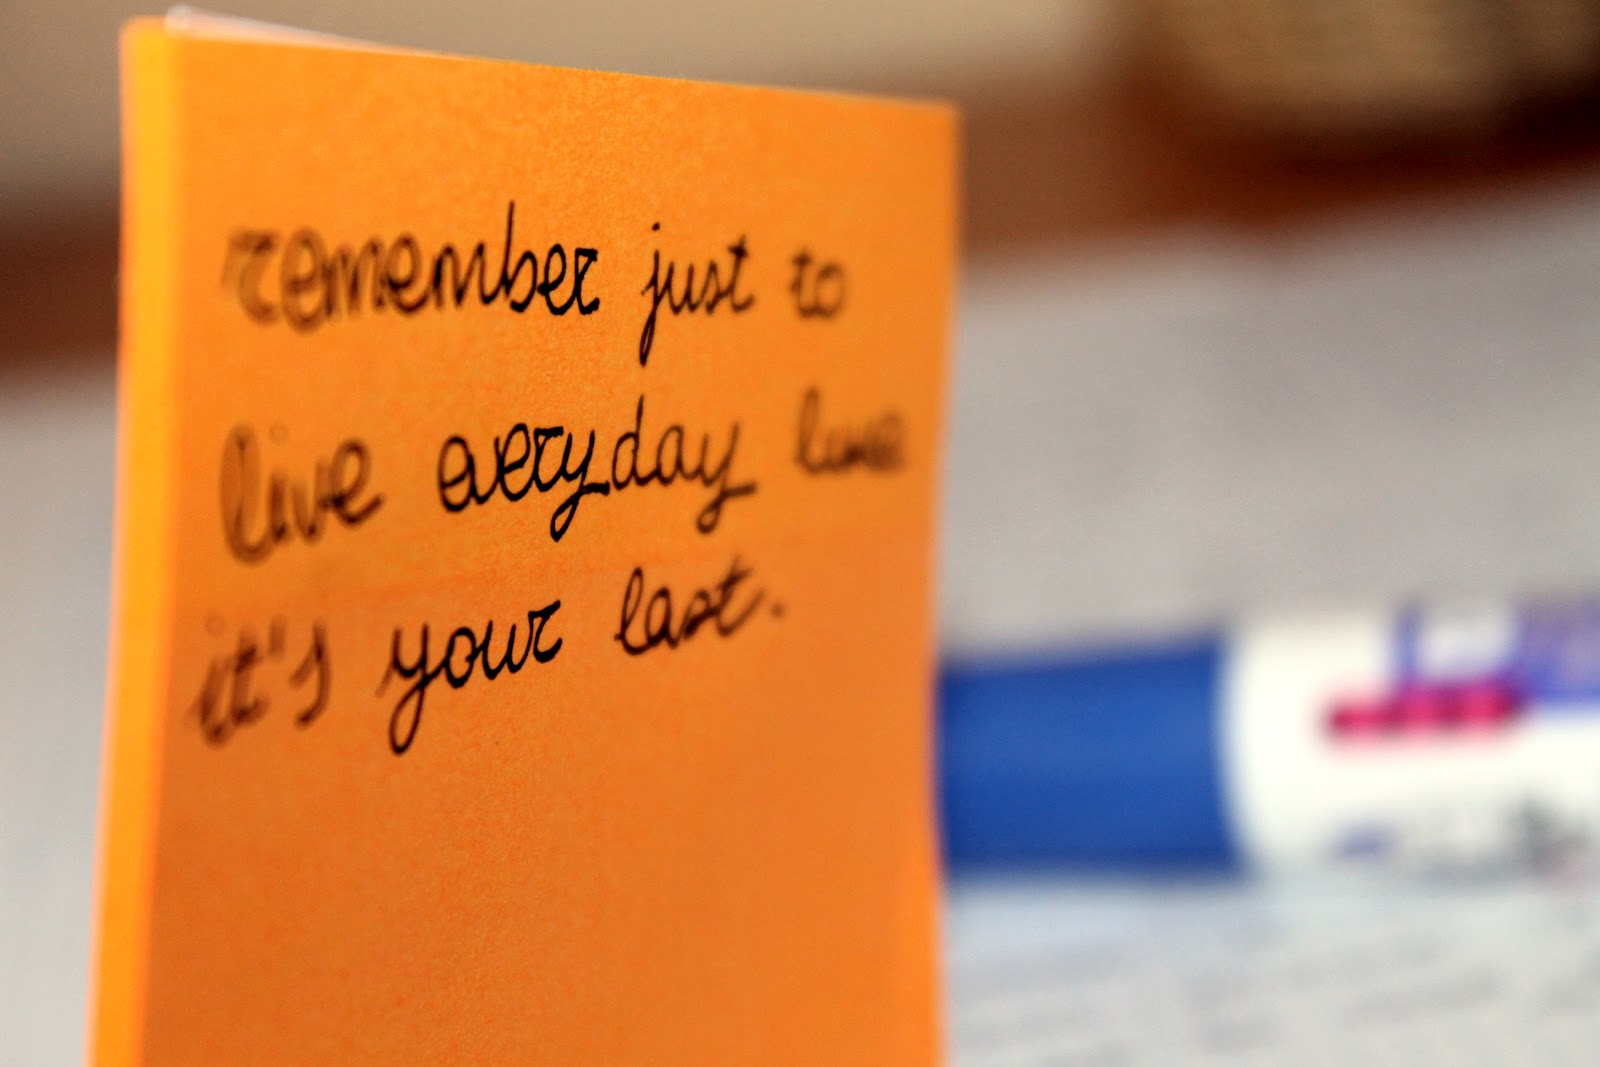 remember just to
live everyday
it's your last.